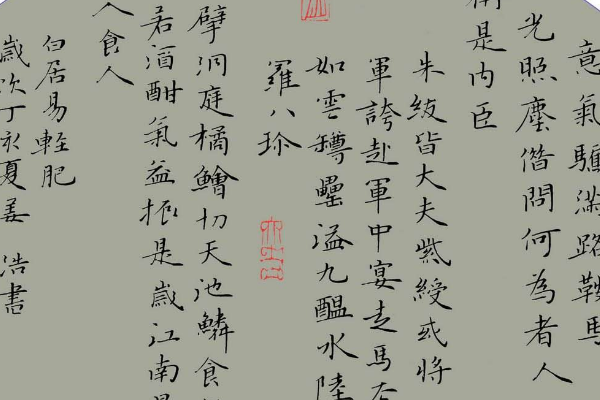 意氣驕滿路鞍馬
光照塵借問何為者人
是內臣
朱紱皆大夫紫綬或將
軍誇赴軍中宴走馬去
如雲罇罍溢九醖水陸
羅八珍
擘洞庭橘鱠切天池鱗食
若酒酣氣益振是歲江南
人食人
白居易輕肥
歲次丁亥夏姜浩書